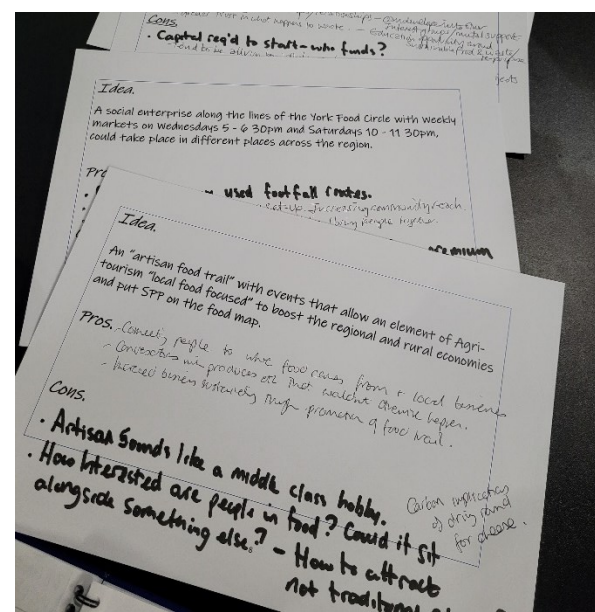 Cons
· Capital req'd to start - who funds?
Idea.
A social enterprise along the lines of the York Food Circle with Weekly
markets on Wednesdays 5 - 6 30pm and Saturdays 10 - 11 30pm,
could take place in different places across the region.
used footfall routes.
increasing community reach
bring people together.
premium
Idea.
An "artisan food trail" with events that allow an element of Agri-
tourism "local food focused" to boost the regional and rural economies
and put SPP on the food map.
Pros. - Connecting people to where food comes from + local business
- Conversations with producers etc that wouldn't otherwise happen.
- Increased business through promotion of food trail.
Cons.
· Artisan Sounds like a middle class hobby.
· How Interested are people in food? Could it sit
alongside something else? - How to attract
not traditional
Carbon implications
of driving round
for cheese.